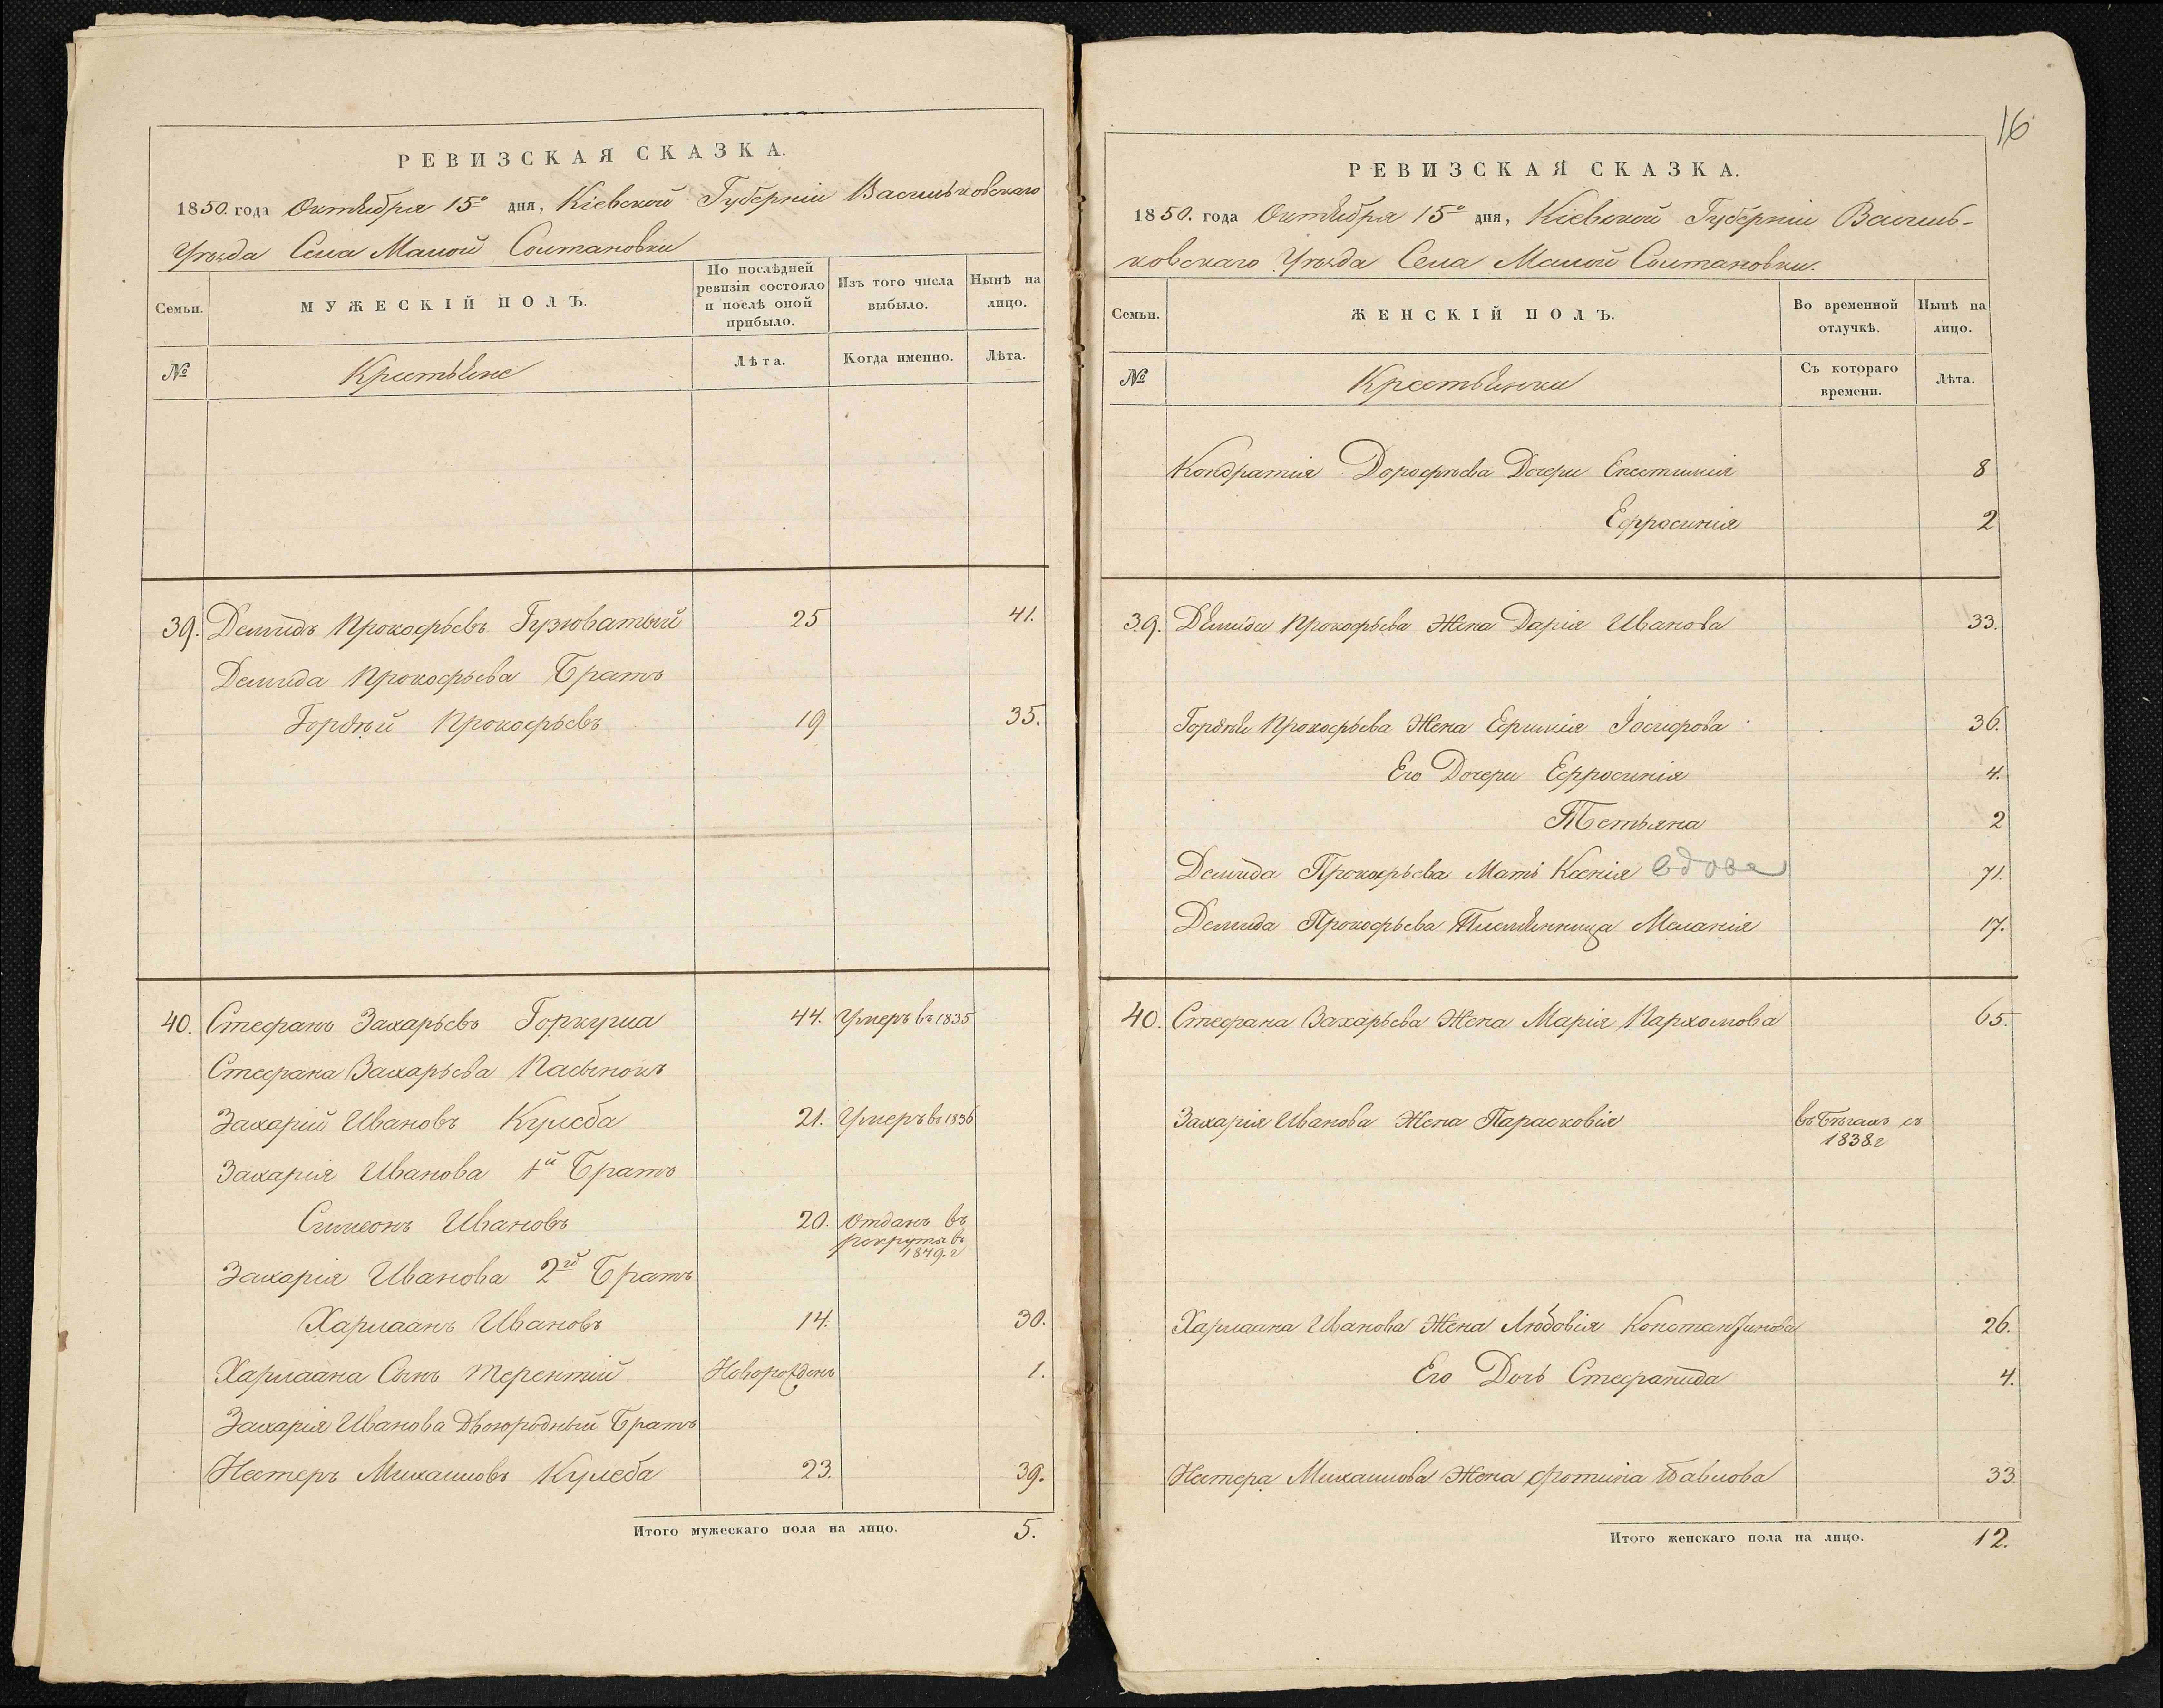 РЕВИЗСКАЯ СКАЗКА.
1850. года Октября 15º дня, Кіевской Губерніи Васильковскаго
Уѣзда Села Малой Солтановки
Семьи.
МУЖЕСКІЙ ПОЛЪ.
По послѣдней
ревизіи состояло
и послѣ оной
прибыло.
Изъ того числа
выбыло.
Нынѣ на
лицо.
№
Крестьяне
Лѣта.
Когда именно.
Лѣта.
39. Демидъ Прокофьевъ Гузоватый 25 41.
Демида Прокофьева Братъ
Гордѣй Прокофьевъ 19 35.
40. Стефанъ Захарьевъ Горкуша 44. Умеръ въ 1835
Стефана Захарьева Пасынокъ
Захарій Ивановъ Кулеба 21. Умеръ въ 1836
Захарія Иванова 1й Братъ
Симеонъ Ивановъ 20. Отданъ въ
рекруты въ
1849. г
Захарія Иванова 2й Братъ
Харлаанъ Ивановъ 14. 30.
Харлаана Сынъ Терентий Новорожденъ 1.
Захарія Иванова Двоюродный Братъ
Нестеръ Михаиловъ Кулеба 23. 39.
Итого мужескаго пола на лицо. 5.
16
РЕВИЗСКАЯ СКАЗКА.
1850. года Октября 15º дня, Кіевской Губерніи Василь-
ковскаго Уѣзда Села Малой Солтановки.
Семьи.
ЖЕНСКІЙ ПОЛЪ.
Во временной
отлучкѣ.
Нынѣ на
лицо.
№
Крестьянки
Съ котораго
времени.
Лѣта.
Кондратія Дорофѣева Дочери Епистимія 8
Ефросинія 2
39. Демида Прокофьева Жена Дарія Иванова 33.
Гордѣя Прокофьева Жена Ефимія Іосифова 36.
Его Дочери Ефросинія 4.
Тетьяна 2
Демида Прокофьева Мать Ксенія вдова 71.
Демида Прокофьева Племянница Меланія 17.
40. Стефана Захарьева Жена Марія Пархомова 65.
Захарія Иванова Жена Парасковія въ бѣгахъ съ
1838 г
Харлаана Иванова Жена Любовія Константинова 26.
Его Дочь Стефанида 4.
Нестера Михаилова Жена Фотина Павлова 33
Итого женскаго пола на лицо. 12.